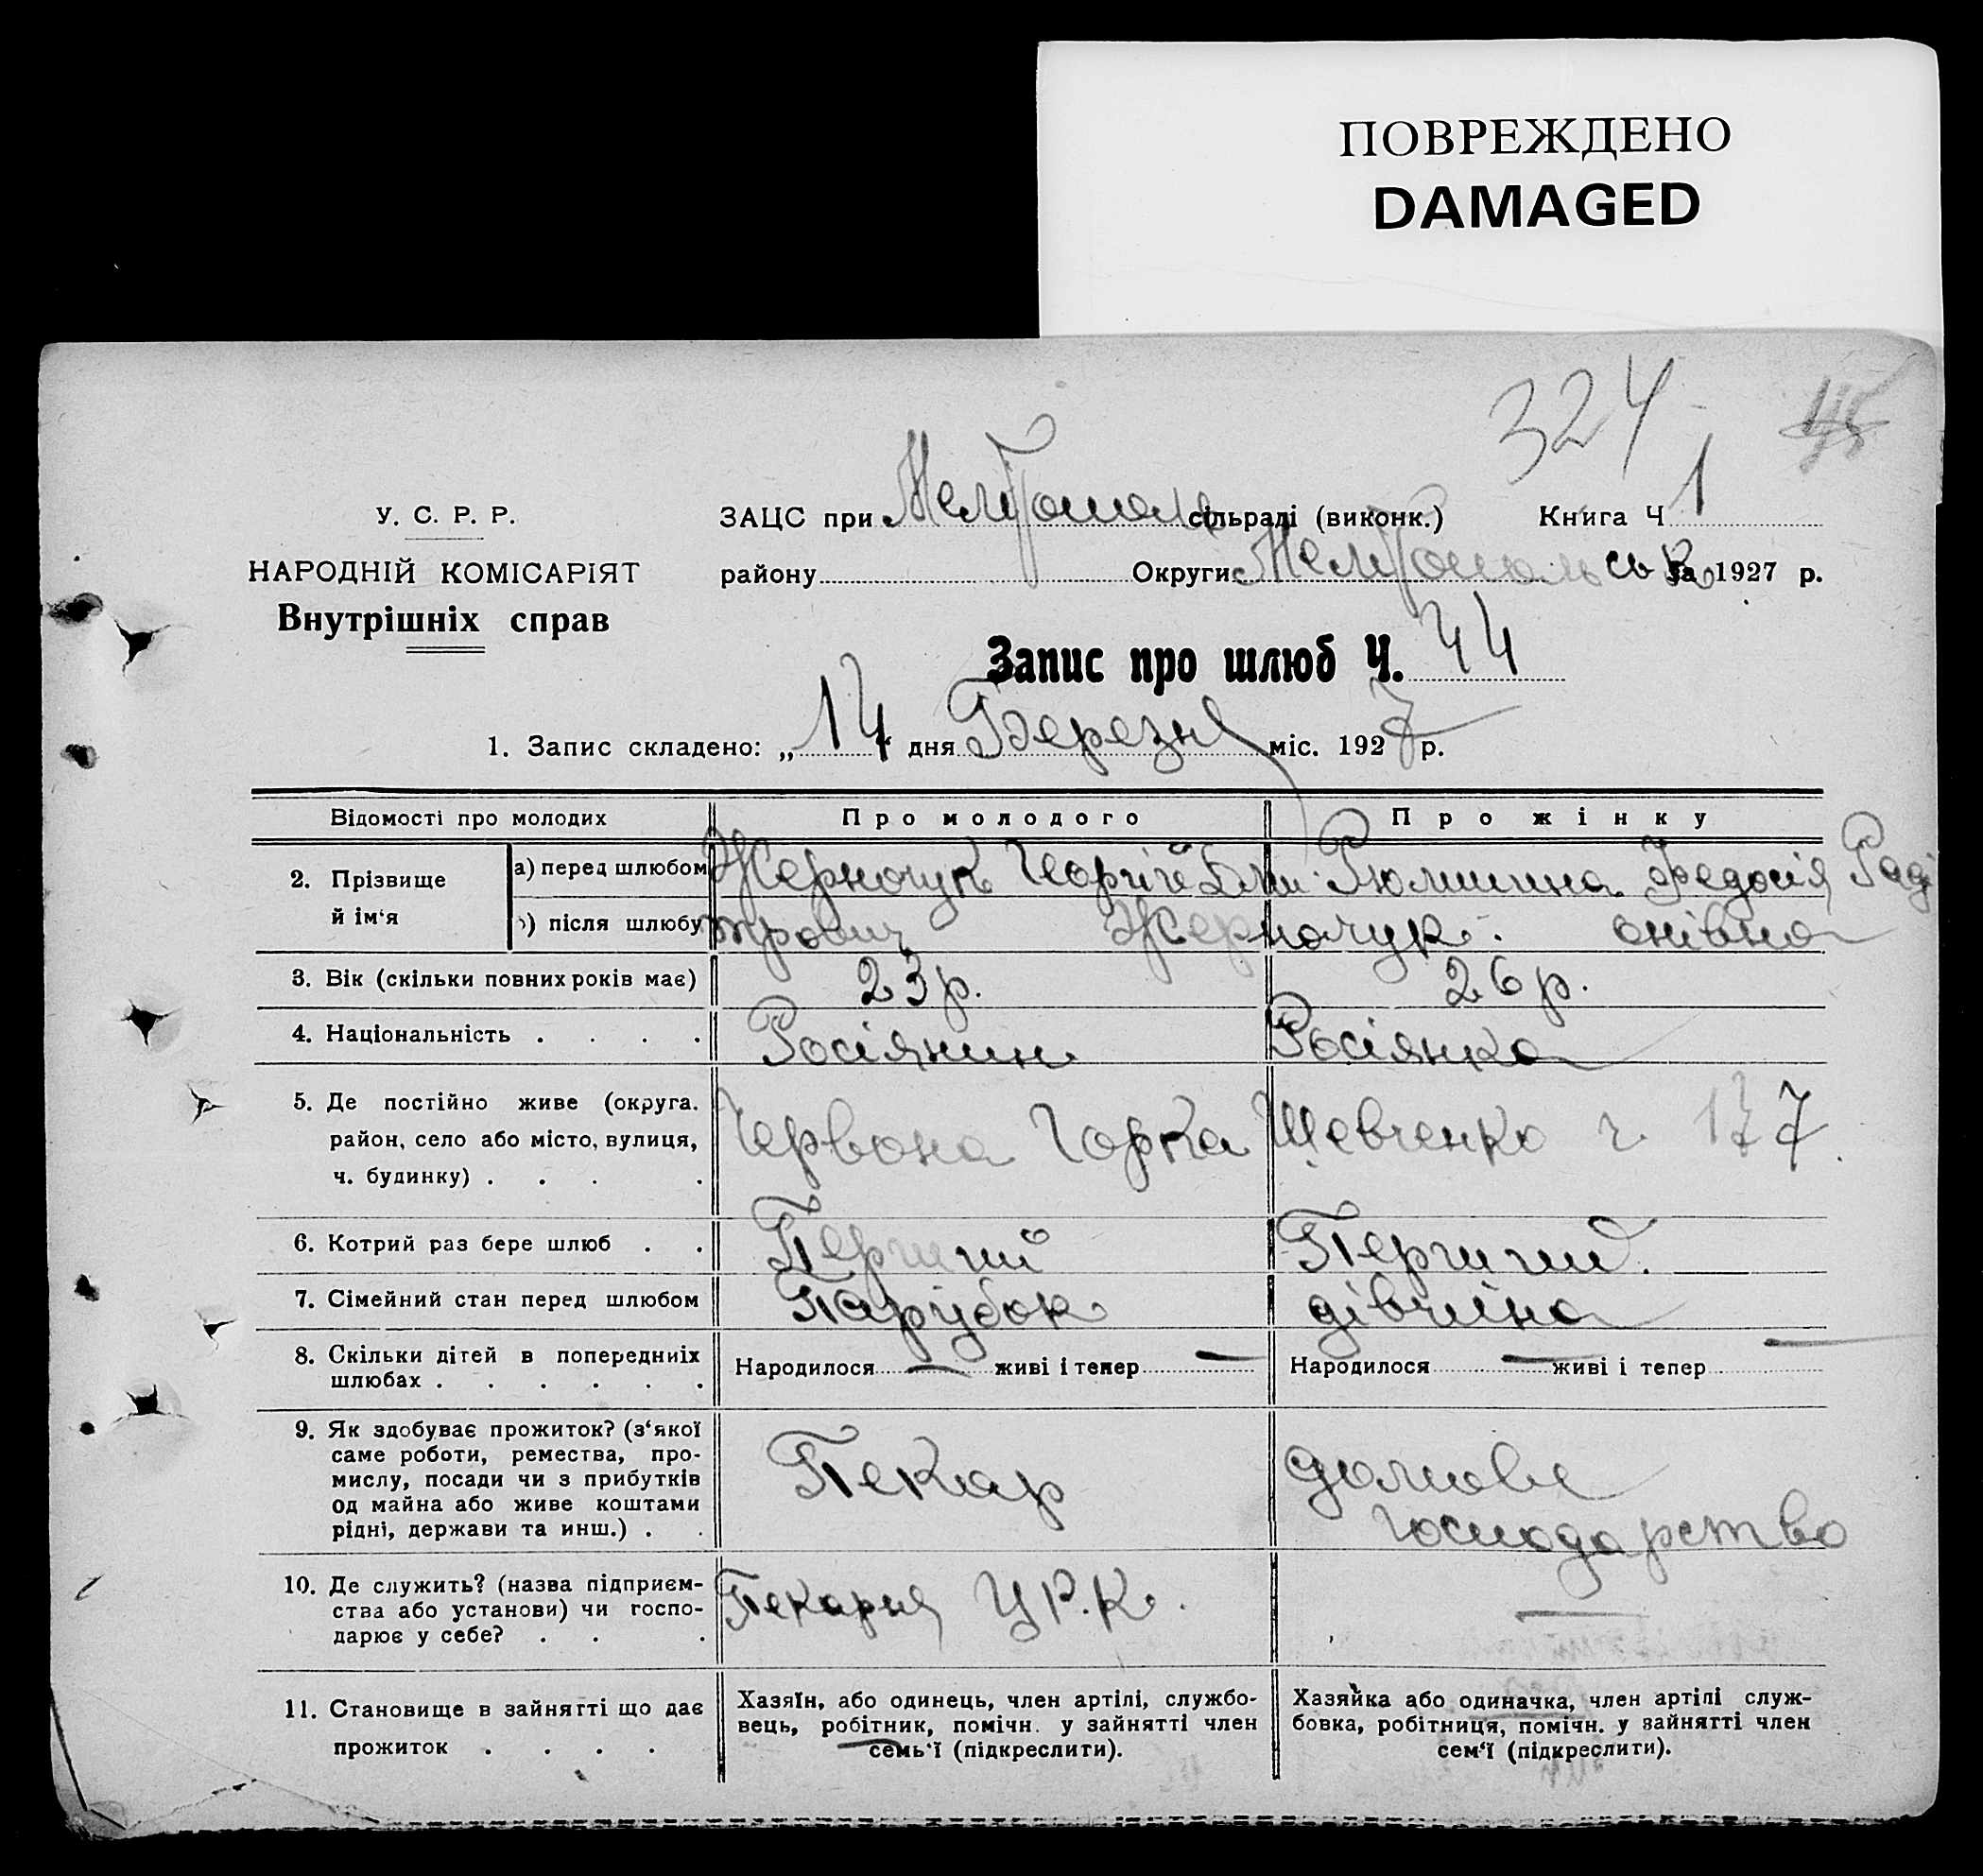 ПОВРЕЖДЕНО
DAMAGED
324
У. С. Р. Р.
НАРОДНІЙ КОМІСАРІЯТ
Внутрішніх справ
ЗАЦС при Мелітополь сільраді (виконк.) Книга Ч 1
району Округи Мелітопольськ за 1927 р.
Запис про шлюб Ч. 44
1. Запис складено: „14 дня Березня міс. 1927 р.
Відомості про молодих Про молодого Про жінку
2. Прізвище й ім‘я
а) перед шлюбом Жерночук Георгій Дми Рюмшина Федосія Раді
б) після шлюбу трович Жерночук. онівна
3. Вік (скільки повних років має) 23 р. 26 р.
4. Національність . . . . Росіянин Росіянка
5. Де постійно живе (округа.
район, село або місто, вулиця,
ч. будинку) . . . .
Червона Горка Шевченко ч. 177
6. Котрий раз бере шлюб . . Перший Перший.
7. Сімейний стан перед шлюбом Парубок дівчина
8. Скільки дітей в попередниіх
шлюбах . . . . . .
Народилося — живі і тепер — Народилося — живі і тепер —
9. Як здобуває прожиток? (з‘якої
саме роботи, ремества, про-
мислу, посади чи з прибутків
од майна або живе коштами
рідні, держави та инш.) . .
Пекар домове
господарство
10. Де служить? (назва підприєм-
ства або установи) чи госпо-
дарює у себе? . . .
Пекарня Ц.Р.К. —
11. Становище в зайнятті що дає
прожиток . . . .
Хазяїн, або одинець, член артілі, службо-
вець, робітник, помічн. у зайнятті член
семь‘ї (підкреслити).
Хазяйка або одиначка, член артілі служ-
бовка, робітниця, помічн. у зайнятті член
сем‘ї (підкреслити).